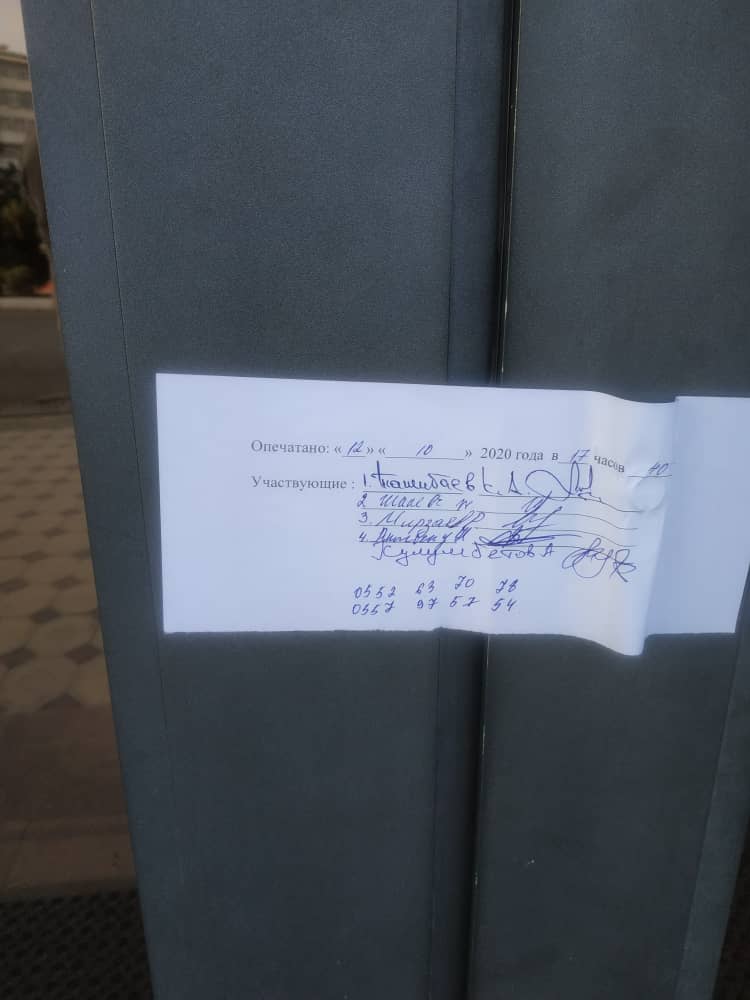 Опечатано: « 12 » « 10 » 2020 года в 17 часов 40
Участвующие : 1. Ташибаев К. А.
2 Шалев Ж
3. Мирзаев Р.
4.
Кулумбетов А
0552 23 70 78
0557 97 57 54